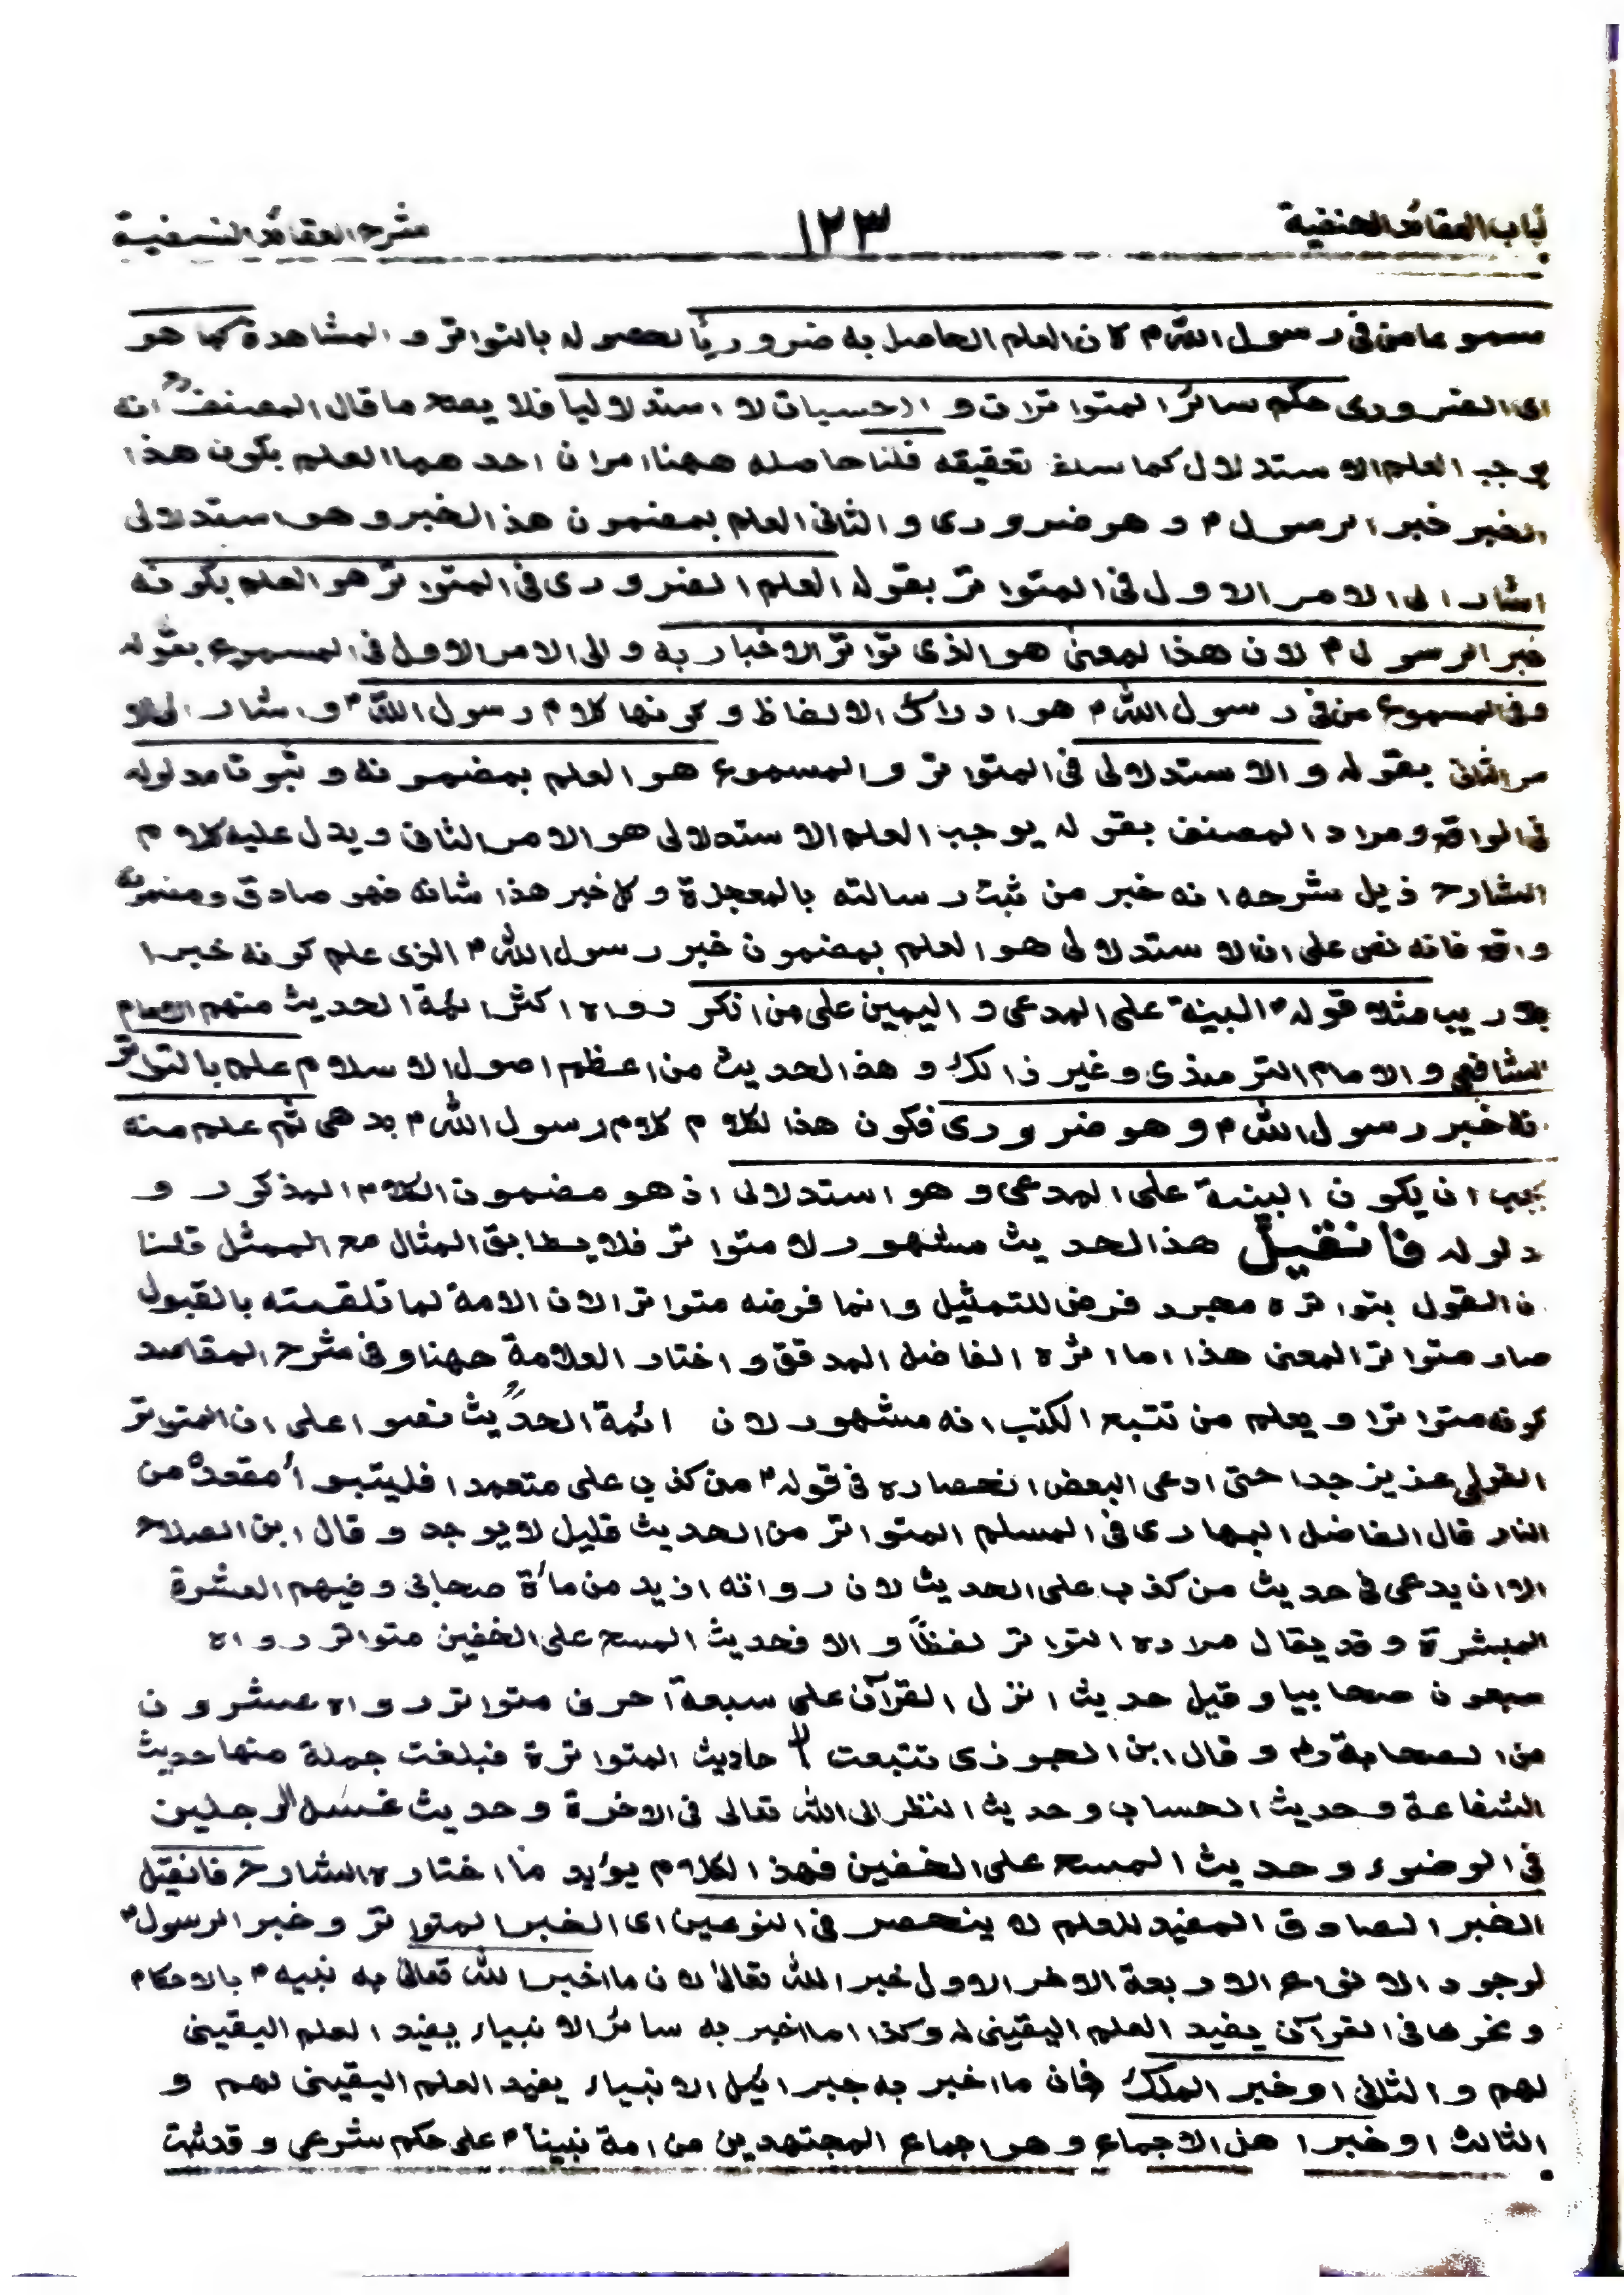 لباب العقائد الحنفية ١٢٣ شرح العقائد النسفية
مسموعا من في رسول اللهم كان العلم الحاصل به ضروريا لحصوله بالتواتر و المشاهدة كما هو
اى الضرورى حكم سائر المتواترات و الاحسيات لا استدلاليا فلا يصح ما قال المصنف انه
يوجب العلم الاستدلال كما سلف تحقيقه قلنا حاصله ههنا امران احدهما العلم بكون هذا
الخبر خبر الرسول م و هو ضرورى و الثانى العلم بمضمون هذ الخبر و هو استدلالى
اشار الى الامر الاول فى المتواتر بقوله العلم الضرورى فى المتواتر هو العلم بكونه
خبر الرسول م لان هذا لمعنى هو الذى تواتر الاخبار به و الى الامر الاول فى المسموع بقوله
و فى المسموع من فى رسول اللهم هو ادراك الالفاظ و كونها كلام رسول اللهم و اشار الى الا
مر الثانى بقوله و الاستدلالى فى المتواتر و المسموع هو العلم بمضمونه و ثبوت مدلوله
فى الواقع و مراد المصنف بقوله يوجب العلم الاستدلالى هو الامر الثانى و يدل عليه كلام
الشارح ذيل شرحه انه خبر من ثبت رسالته بالمعجزة و كل خبر هذا شانه فهو صادق و مضمونه
واقع فانه نص على ان الاستدلالى هو العلم بمضمون خبر رسول الله م الذى علم كونه خبرا
بلا ريب مثلا قوله م البينة على المدعى و اليمين على من انكر رواه اكثر ائمة الحديث منهم الامام
الشافعى و الامام الترمذى و غير ذالك و هذ الحديث من اعظم اصول الاسلام علم بالتواتر
نه خبر رسول الله م و هو ضرورى فكون هذا لكلام كلام رسول الله م بدهى ثم علم منه
يجب ان يكون البينة على المدعى و هو استدلالى اذ هو مضمون الكلام المذكور و
دلوله فان قيل هذ الحديث مشهور لا متواتر فلا يطابق المثال مع الممثل قلنا
ن القول بتواتره مجرد فرض للتمثيل و انما فرضه متواترا لان الامة لما تلقته بالقبول
صار متواتر المعنى هذا اما اثره الفاضل المدقق و اختار العلامة ههنا و فى شرح المقاصد
كونه متواترا و يعلم من تتبع الكتب انه مشهور لان ائمة الحديث نصوا على ان المتواتر
القولى عزيز جدا حتى ادعى البعض انحصاره فى قوله م من كذب على متعمدا فليتبوأ مقعده من
النار قال الفاضل البهارى فى المسلم المتواتر من الحديث قليل لا يوجد و قال ابن الصلاح
الا ان يدعى فى حديث من كذب على الحديث لان رواته ازيد من مأة صحابى و فيهم العشرة
المبشرة و قد يقال مراده التواتر لفظاً و الا فحديث المسح على الخفين متواتر رواه
سبعون صحابيا و قيل حديث انزل القرآن على سبعة آحرف متواتر رواه عشرون
من الصحابة رض و قال ابن الجوزى تتبعت الاحاديث المتواترة فبلغت جملة منها حديث
الشفاعة و حديث الحساب و حديث النظر الى الله تعالى فى الاخرة و حديث غسل الرجلين
فى الوضوء و حديث المسح على الخفين فهذ الكلام يؤيد ما اختاره الشارح فان قيل
الخبر الصادق المفيد للعلم لا ينحصر فى النوعين اى الخبر المتواتر و خبر الرسول م
لوجود الانواع الاربعة الاخر الاول خبر الله تعالى لان ما اخبر الله تعالى به نبيه م بالاحكام
و نحوها فى القرآن يفيد العلم اليقينى له و كذا اما اخبر به سائر الانبياء يفيد العلم اليقينى
لهم و الثانى او خبر الملك فان ما اخبر به جبرائيل الانبياء يفيد العلم اليقينى لهم و
الثالث او خبرا هل الاجماع و هو اجماع المجتهدين من امة نبينا م على حكم شرعى و قد ثبت